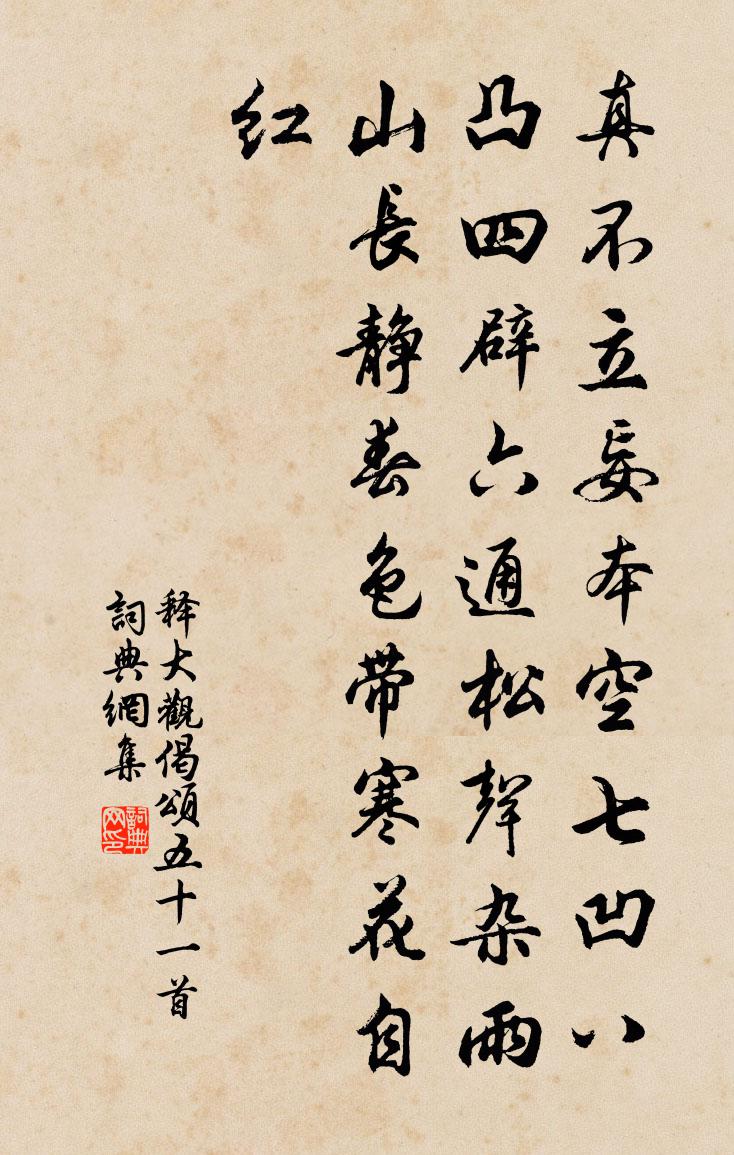 真不立妄本空七凹八
凸四辟六通松聲杂雨
山長静春色带寒花自
红
释大觀偈頌五十一首
詞典網集
詞典
网印